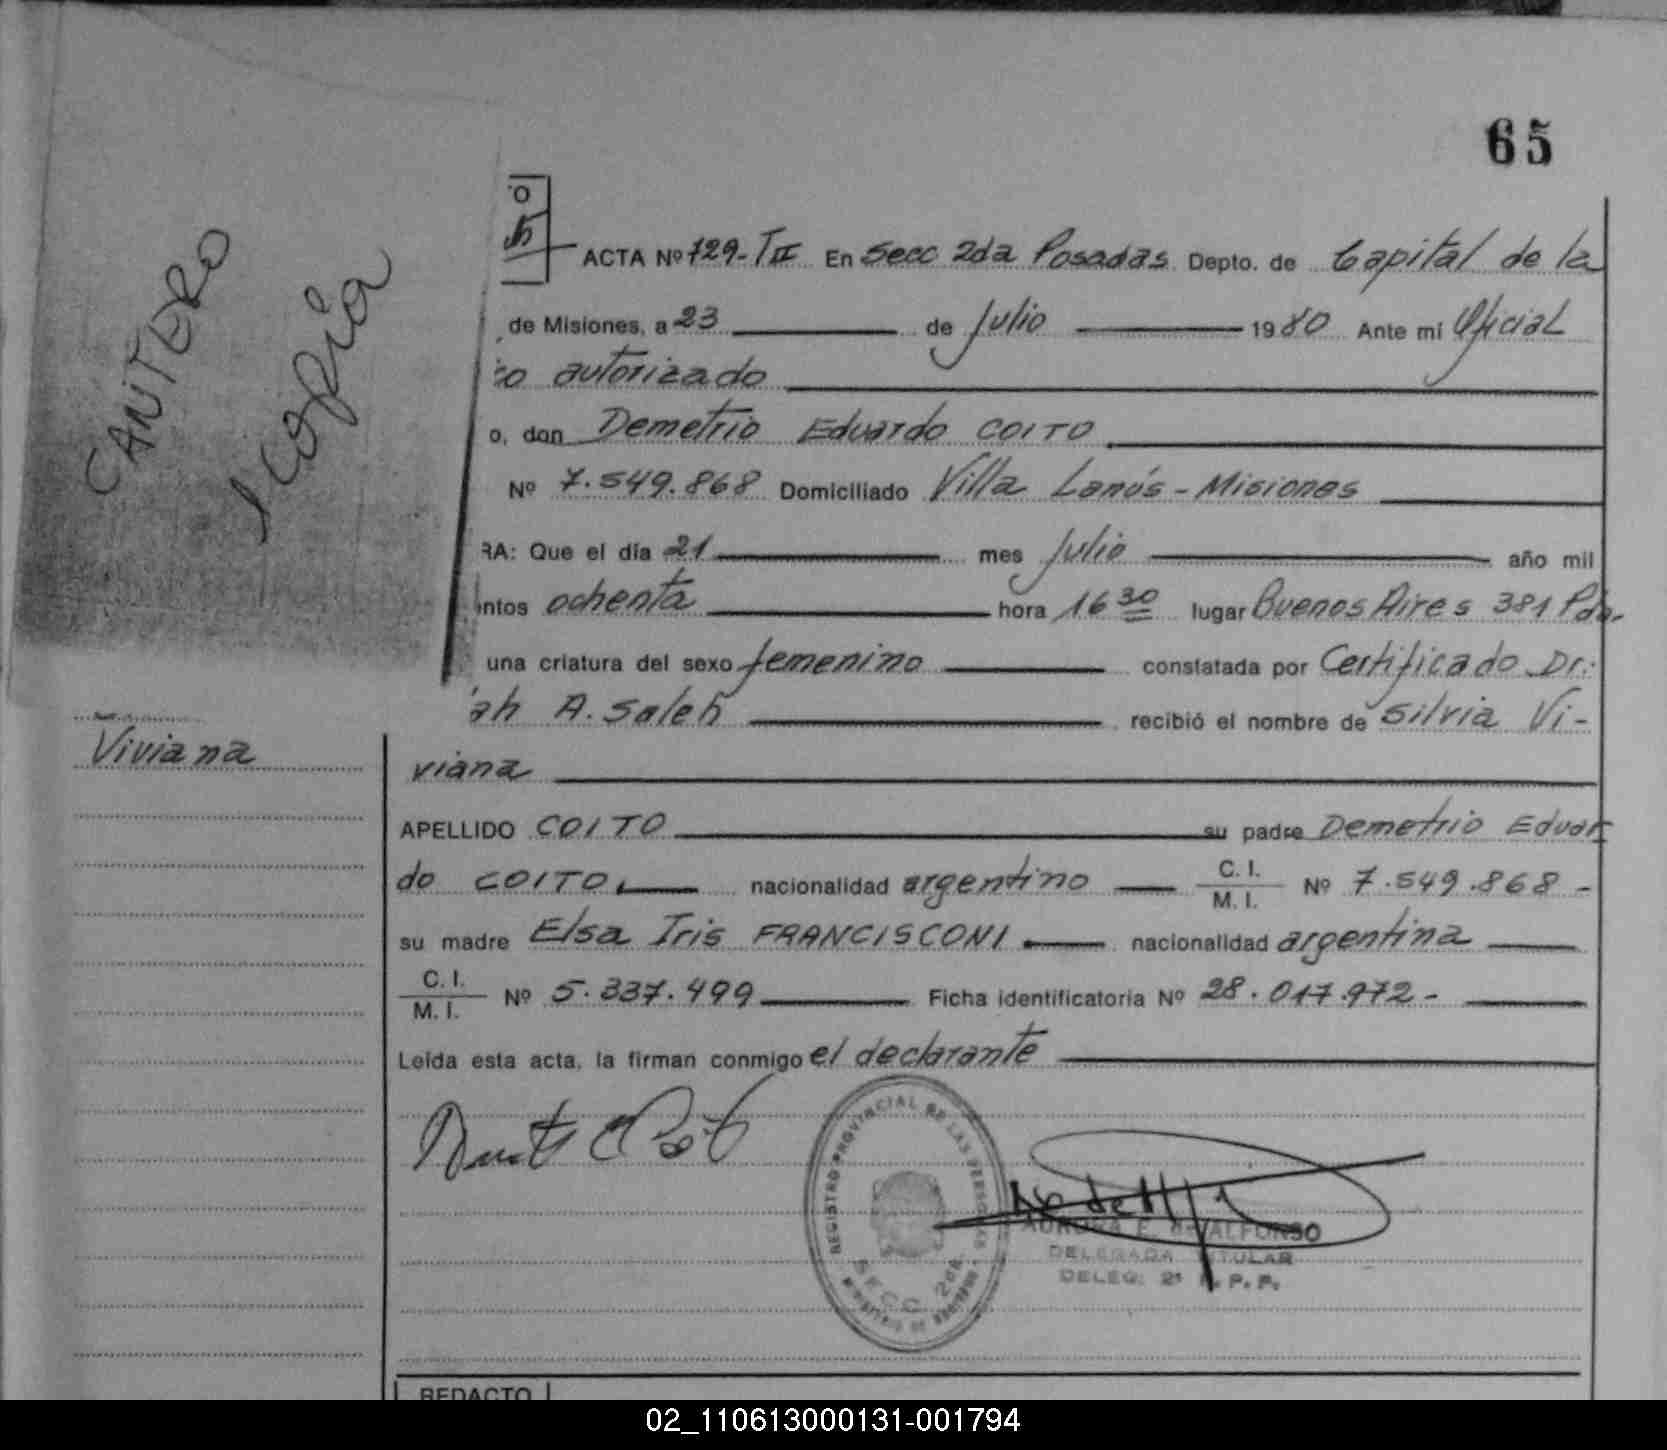 65
CANTERO
1 copia
ACTA Nº 729-TII En Secc 2da Posadas Depto. de Capital de la
de Misiones, a 23 de Julio 1980 Ante mí Oficial
co autorizado
o, don Demetrio Eduardo COITO
Nº 7.549.868 Domiciliado Villa Lanús - Misiones
RA: Que el día 21 mes Julio año mil
ntos ochenta hora 16 30 lugar Buenos Aires 381 Pdas.
una criatura del sexo femenino constatada por Certificado Dr.
ah A. Saleh recibió el nombre de Silvia Vi-
Viviana
viana
APELLIDO COITO su padre Demetrio Eduar
do COITO nacionalidad argentino C. I. / M. I. Nº 7.549.868 -
su madre Elsa Iris FRANCISCONI nacionalidad argentina
C. I. / M. I. Nº 5.337.499 Ficha identificatoria Nº 28.017.972 -
Leída esta acta, la firman conmigo el declarante
REGISTRO PROVINCIAL DE LAS PERSONAS
SECC 2da.
MINISTERIO DE GOBIERNO
AURORA F. de ALFONSO
DELEGADA TITULAR
DELEG. 2ª R. P. P.
REDACTO
02_110613000131-001794